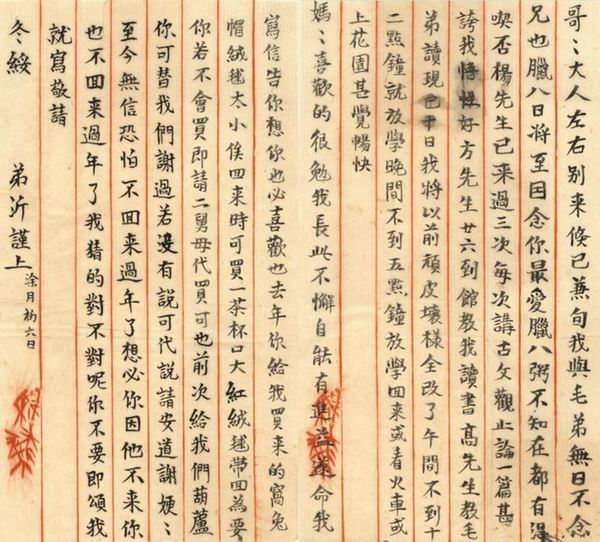 哥〻大人左右别来倏已兼旬我與毛弟無日不念
兄也臘八日將至因念你最愛臘八粥不知在都有得
喫否楊先生已来過三次每次講古文觀止論一篇甚
誇我悟性好方先生廿六到館教我讀書高先生教毛
弟讀現日我將以前頑皮壞樣全改了午間不到十
二點鐘就放學晚間不到五點鐘放學回来或看火車或
上花園甚覺暢快
媽〻喜歡的很勉我長此不懈自能有進益遂命我
寫信告你想你也必喜歡也去年你給我買来的窩兔
帽絨毬太小俟回来時可買一茶杯口大紅絨毬帶回為要
你若不會買即請二舅母代買可也前次給我們葫蘆
你可替我們謝過若沒有説可代説請安道謝㛐〻
至今無信恐怕不回来過年了想必你因他不来你
也不回来過年了我猜的對不對呢你不要即頌我
就寫敬請
冬綏
弟沂謹上
涂月初六日